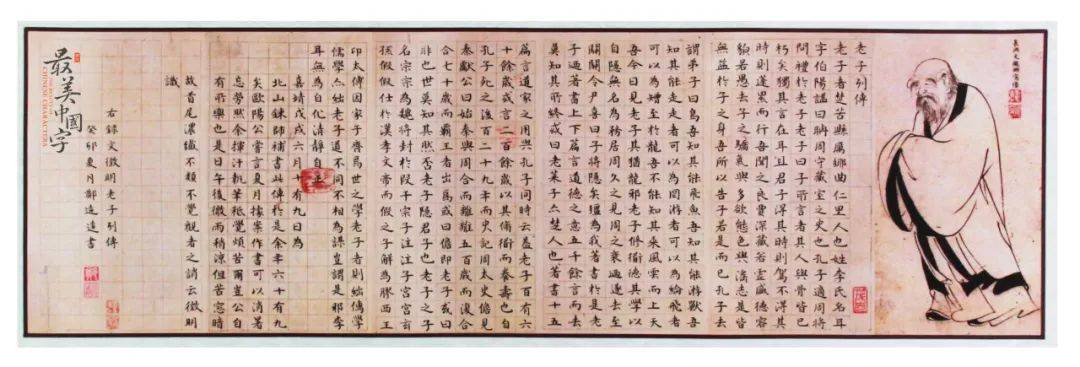 老子列傳
老子者楚苦縣厲鄉曲仁里人也姓李氏名耳
字伯陽諡曰聃周守藏室之史也孔子適周將
問禮於老子老子曰子所言者其人與骨皆已
朽矣獨其言在耳且君子得其時則駕不得其
時則蓬累而行吾聞之良賈深藏若虛盛德容
貌若愚去子之驕氣與多欲態色與淫志是皆
無益於子之身吾所以告子若是而已孔子去
謂弟子曰鳥吾知其能飛魚吾知其能游獸吾
知其能走走者可以為罔游者可以為綸飛者
可以為矰至於龍吾不能知其乘風雲而上天
吾今日見老子其猶龍邪老子修道德其學以
自隱無名為務居周久之見周之衰迺遂去至
關關令尹喜曰子將隱矣彊為我著書於是老
子迺著書上下篇言道德之意五千餘言而去
莫知其所終或曰老萊子亦楚人也著書十五
篇言道家之用與孔子同時云蓋老子百有六
十餘歲或言二百餘歲以其脩道而養壽也自
孔子死之後百二十九年而史記周太史儋見
秦獻公曰始秦與周合而離五百歲而復合
合七十歲而霸王者出焉或曰儋即老子或曰
非也世莫知其然否老子隱君子也老子之子
名宗宗為魏將封於段干宗子注注子宮宮玄
孫假假仕於漢孝文帝而假之子解為膠西王
卬太傅因家于齊焉世之學老子者則絀儒學
儒學亦絀老子道不同不相為謀豈謂是邪李
耳無為自化清靜自正
嘉靖戊戌六月十有九日為
北山錬師補書此傳於是余年六十有九
矣歐陽公嘗言夏月據案作書可以消暑
忘勞然余揮汗執筆秪覺煩苦爾豈公自
有所樂也是日午後微雨稍涼但苦窓暗
故首尾濃纖不類不覺觀者之誚云徵明
識
右錄文徵明老子列傳
癸卯夏月鄒遠書
最美中國字